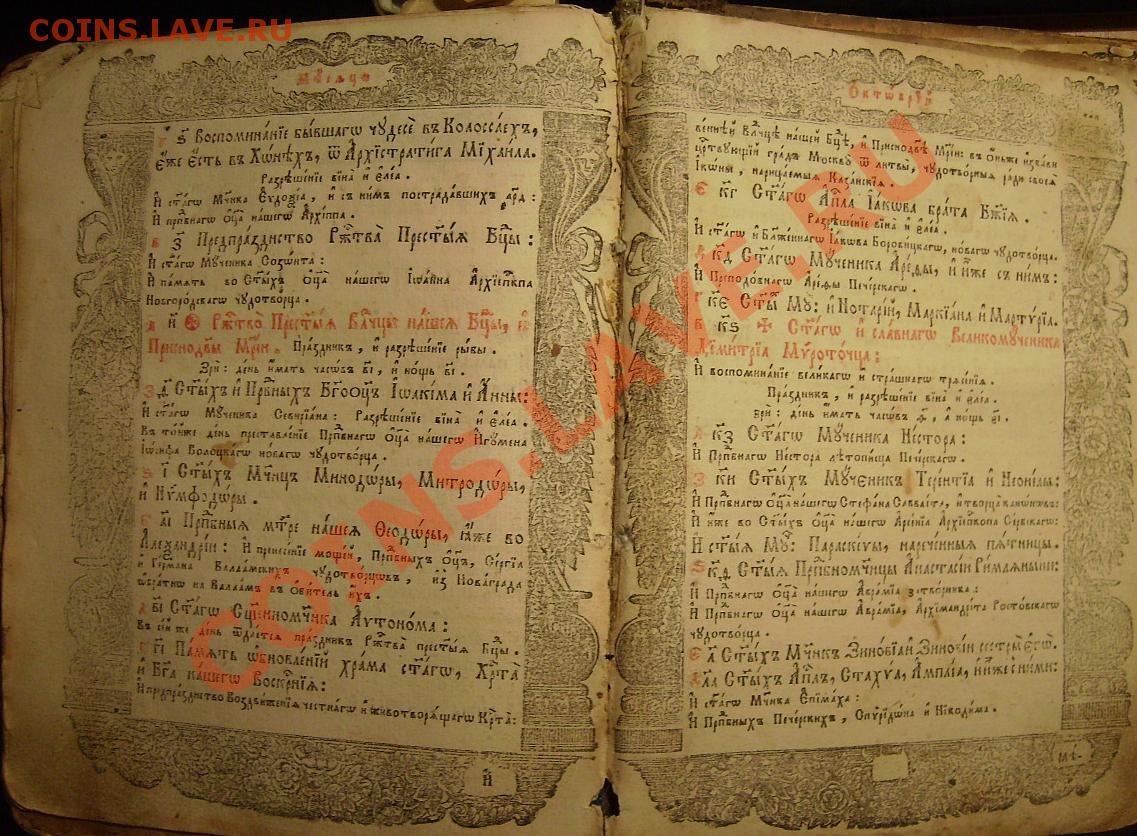 COINS.LAVE.RU
Мѣсяцъ
ѕ҃ Воспоминанїе бывшагѡ чꙋдесѐ въ Колоссаехъ,
є҆́же є҆́сть въ Хѡ́нѣхъ, ѿ А҆рхїстрати́га Мїхаи́ла.
Разрѣшенїе вїна̀ и҆ є҆ле́а.
И҆ ст҃а́гѡ мч҃ника Є҆ѵдоѯїа, и҆ съ ни́мъ пострада́вшихъ
И҆ прпⷣбнагѡ ѻ҆ц҃а̀ на́шегѡ А҆рхїппа.
в з҃ Предпра́зднство Ржⷭ҇тва̀ Прест҃ы́ѧ Бцⷣы:
И҆ ст҃а́гѡ Мꙋ́ченика Созѡ́нта:
И҆ па́мѧть во Ст҃ы́хъ Ѻ҆ц҃а̀ на́шегѡ І҆ѡа́нна А҆рхїепⷭ҇кпа
Новгоро́дскагѡ чꙋдотво́рца.
а и҃ Ржⷭ҇тво̀ Прест҃ы́ѧ Влⷣчцы на́шеѧ Бцⷣы, и҆
Приснодв҃ы Мр҃і́и. Пра́здникъ, и҆ разрѣше́нїе ры́бы.
Зрѝ: де́нь и҆́мать часѡ́въ в҃і, и҆ но́щь в҃і.
З ѳ҃ Ст҃ы́хъ и҆ Првⷣныхъ Бг҃оѻц҃ъ І҆ѡакі́ма и҆ А҆́нны:
И҆ ст҃а́гѡ Мꙋ́ченика Севирїа́на: Разрѣше́нїе вїна̀ и҆ є҆ле́а.
Въ то́йже де́нь преставле́нїе Прпⷣбнагѡ Ѻ҆ц҃а̀ на́шегѡ И҆гꙋ́мена
І҆ѡ́сифа Волоцкагѡ но́вагѡ чꙋдотво́рца.
ѕ і҃ Ст҃ы́хъ Мч҃ницъ Минодѡ́ры, Митродѡ́ры,
и҆ Нѷмфодѡ́ры.
є а҃і Прпⷣбныѧ мт҃ре на́шеѧ Ѳеодѡ́ры, ꙗ҆́же во
А҆леѯандрі́и: И҆ принесе́нїе моще́й, Прпⷣбныхъ Ѻ҆ц҃ъ, Се́ргїа
и҆ Ге́рмана Валаамскихъ чꙋдотво́рцовъ, и҆з̾ Нова́града
ѡ҆бра́тнѡ на Валаа́мъ въ Ѻ҆би́тель и҆́хъ.
д в҃і Ст҃а́гѡ Сщ҃енномч҃ника А҆ѵтоно́ма:
Въ се́йже де́нь ѿдае́тсѧ пра́здникъ Ржⷭ҇тва̀ прест҃ы́ѧ Бцⷣы.
г г҃і Па́мѧть ѡ҆бновле́нїй хра́ма ст҃а́гѡ, Хрⷭ҇та̀
и҆ Бг҃а на́шегѡ Воскрⷭ҇нїѧ:
И҆ предпра́зднство Воздви́женїѧ честна́гѡ и҆ животворѧ́щагѡ Крⷭ҇та̀:
и҃
Ѻ҆ктѡ́врїй
веннѣ́й Влⷣчцѣ на́шей Бцⷣѣ, и҆ Приснодв҃ѣ Мр҃і́и: въ ѻ҆́ньже и҆зба́ви
црⷭ҇твꙋющїй гра́дъ Москвꙋ̀ ѿ литвы̀, чꙋдотво́рныѧ ра́ди своеѧ̀
І҆кѡ́ны, нарица́емыѧ Каза́нскїѧ.
є к҃г Ст҃а́гѡ А҆пⷭ҇ла І҆а́кѡва бра́та Бж҃їѧ.
Разрѣше́нїе вїна̀ и҆ є҆ле́а.
И҆ ст҃а́гѡ и҆ Бл҃же́ннагѡ І҆а́кѡва Боро́вицкагѡ, но́вагѡ чꙋдотво́рца.
к҃д Ст҃а́гѡ Мꙋ́ченика А҆ре́ѳы, и҆ и҆̀же съ ни́мъ:
И҆ Преподо́бнагѡ А҆ре́ѳы Пече́рскагѡ.
г к҃є Ст҃ы́хъ Мꙋ: и҆ Нота́рїй, Маркїа́на и҆ Мартѷ́рїа.
в к҃ѕ Ст҃а́гѡ и҆ сла́внагѡ Великомꙋ́ченика
Дими́трїа Мѷрото́чца:
И҆ воспомина́нїе вели́кагѡ и҆ стра́шнагѡ трѧсе́нїѧ.
Пра́здникъ, и҆ разрѣше́нїе вїна̀ и҆ є҆ле́а.
Зрѝ: де́нь и҆́мать часѡ́въ, а҆ но́щь
к҃з Ст҃а́гѡ Мꙋ́ченика Не́стора:
И҆ Прпⷣбнагѡ Не́стора лѣтопи́сца Пече́рскагѡ.
З к҃и Ст҃ы́хъ Мꙋ́ченикъ Тере́нтїа и҆ Неоні́лы:
И҆ Прпⷣбнагѡ Ѻ҆ц҃а̀ на́шегѡ Стефа́на Савваи́та, и҆ творца̀ кано́нѡвъ:
И҆ и҆́же во Ст҃ы́хъ Ѻ҆ц҃а̀ на́шегѡ А҆рсе́нїа А҆рхїепⷭ҇копа Се́рбскагѡ:
И҆ ст҃ы́ѧ Мꙋ: Параске́ѵы, нарече́нныѧ пѧ́тницы.
ѕ к҃ѳ Ст҃ы́ѧ Прпⷣбномч҃ницы А҆настасі́и Ри́млѧныни:
И҆ Прпⷣбнагѡ Ѻ҆ц҃а̀ на́шегѡ А҆вра́мїа затво́рника:
И҆ Прпⷣбнагѡ Ѻ҆ц҃а̀ на́шегѡ А҆вра́мїа, А҆рхїмандрі́та Росто́вскагѡ
чꙋдотво́рца.
є л҃ Ст҃ы́хъ Мч҃никъ Зино́вїа и҆ Зино́вїи сестры̀ є҆гѡ̀.
д л҃а Ст҃ы́хъ А҆пⷭ҇лъ, Ста́хꙋа, А҆мплі́а, и҆ и҆̀же съ ни́ми:
И҆ ст҃а́гѡ Мч҃ника Є҆піма́ха:
И҆ Прпⷣбныхъ Пече́рскихъ, Спѷрїдѡ́на и҆ Нїкоди́ма.
COINS.LAVE.RU